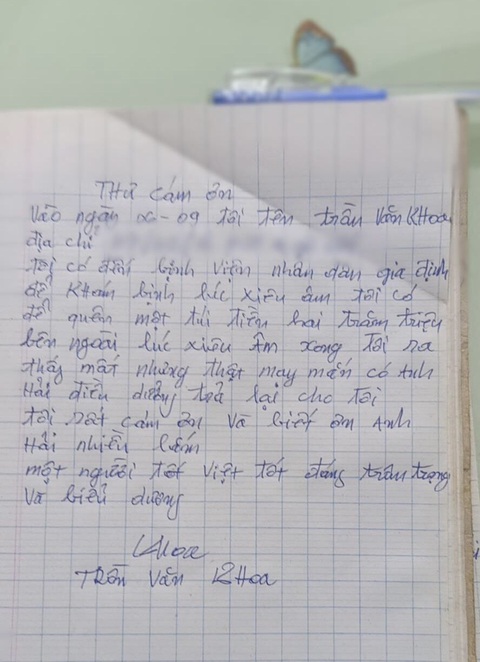 Thư cám ơn
Vào ngàn 06-09 tôi tên trần Văn Khoa
địa chỉ
tôi có đến bịnh viện nhân dân gia định
để Khám bịnh lúc xiêu âm tôi có
để quên một túi tiền hai trăm triệu
bên ngoài lúc xiêu Âm xong tôi ra
thấy mất nhưng thật may mắn có Anh
Hải điều dưỡng trả lại cho tôi
tôi rất cám ơn và biết ơn Anh
Hải nhiều lắm
một người tốt việt tốt đáng trân trọng
Và biểu dương
Khoa
Trần Văn Khoa